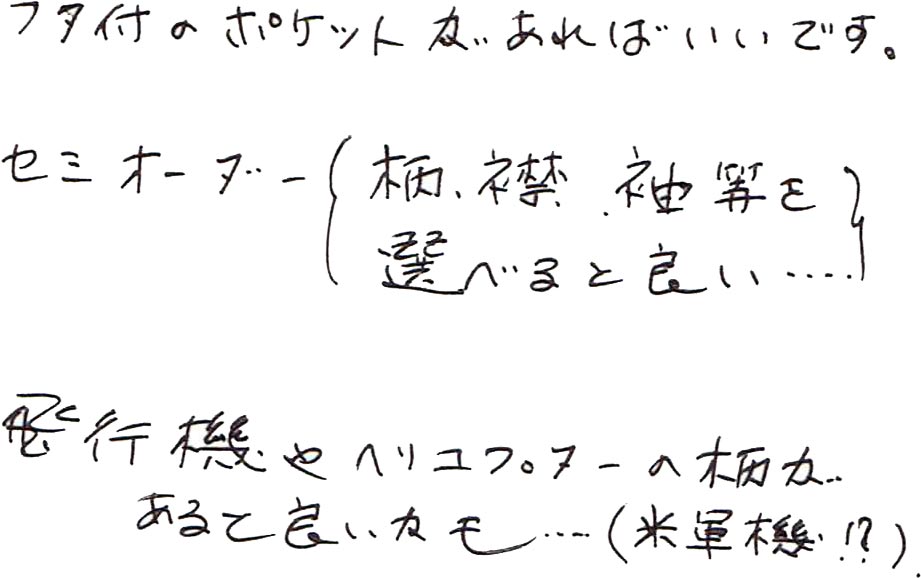 フタ付のポケットがあればいいです。
セミオーダー{柄、襟、袖等を
選べると良い……}
飛行機やヘリコプターの柄が
あると良いかも……(米軍機!?)